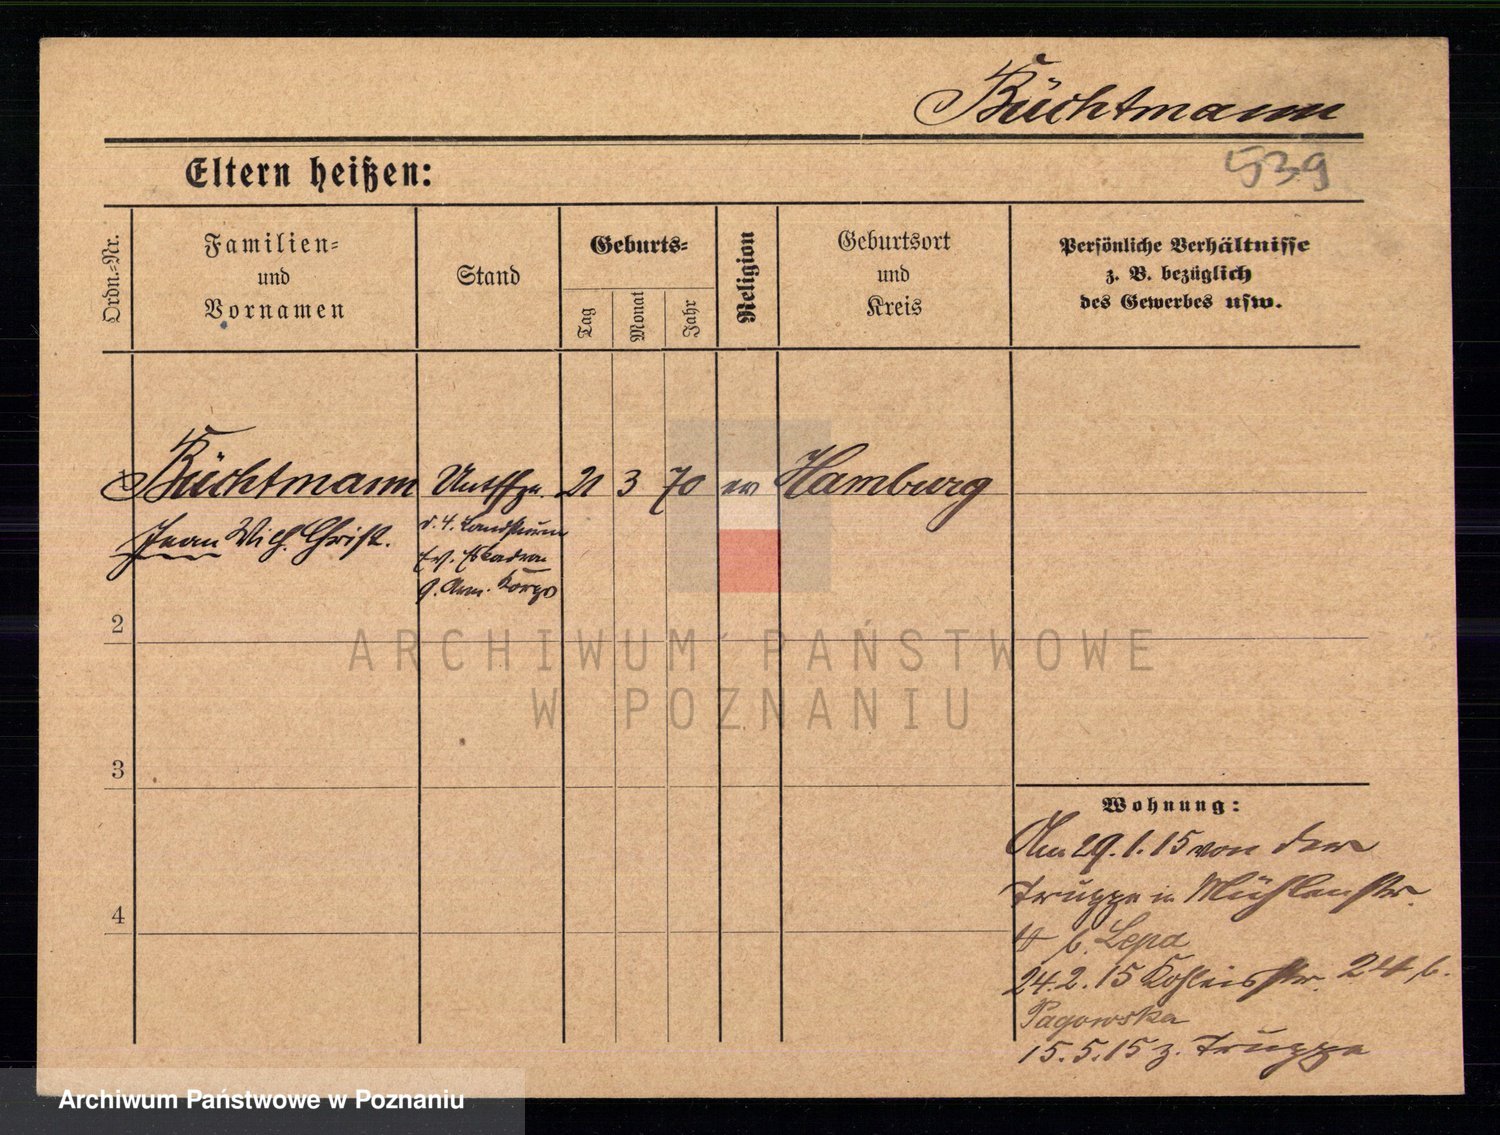 Büchtmann
Eltern heißen:
539
Ordn.-Nr.
Familien-
und
Vornamen
Stand
Geburts-
Tag
Monat
Jahr
Religion
Geburtsort
und
Kreis
Persönliche Verhältnisse
z. B. bezüglich
des Gewerbes usw.
1
Büchtmann
Untffz. 21 3 70 ev Hamburg
Jean Wilh. Christ.
d. 4. Landsturm
Eskadron
9. Arm. Korps
2
ARCHIWUM PAŃSTWOWE
W POZNANIU
3
Wohnung:
Am 29.1.15 von der
Truppe in Mühlenstr.
b. Lepa
24.2.15 Kohleisstr. 24 b.
Pagowska
15.5.15 z. Truppe
4
Archiwum Państwowe w Poznaniu